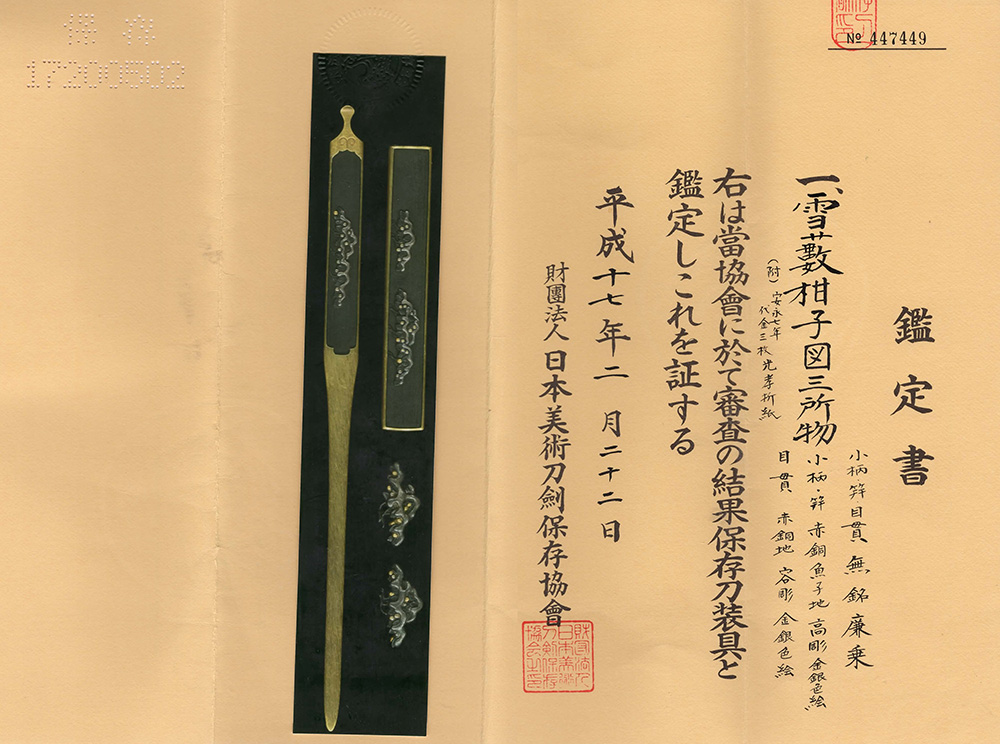 鑑定書
№ 447449
一、雪薮柑子図三所物
小柄・笄・目貫 無銘 廉乗
小柄・笄 赤銅魚子地 高彫 金銀色絵
目貫 赤銅地 容彫 金銀色絵
(附)安永七年
代金三枚光孝折紙
右は當協會に於て審査の結果保存刀装具と
鑑定しこれを証する
平成十七年二月二十二日
財團法人日本美術刀劍保存協會
財団法人
日本美術
刀剣保存
協会之印
保存
17200502